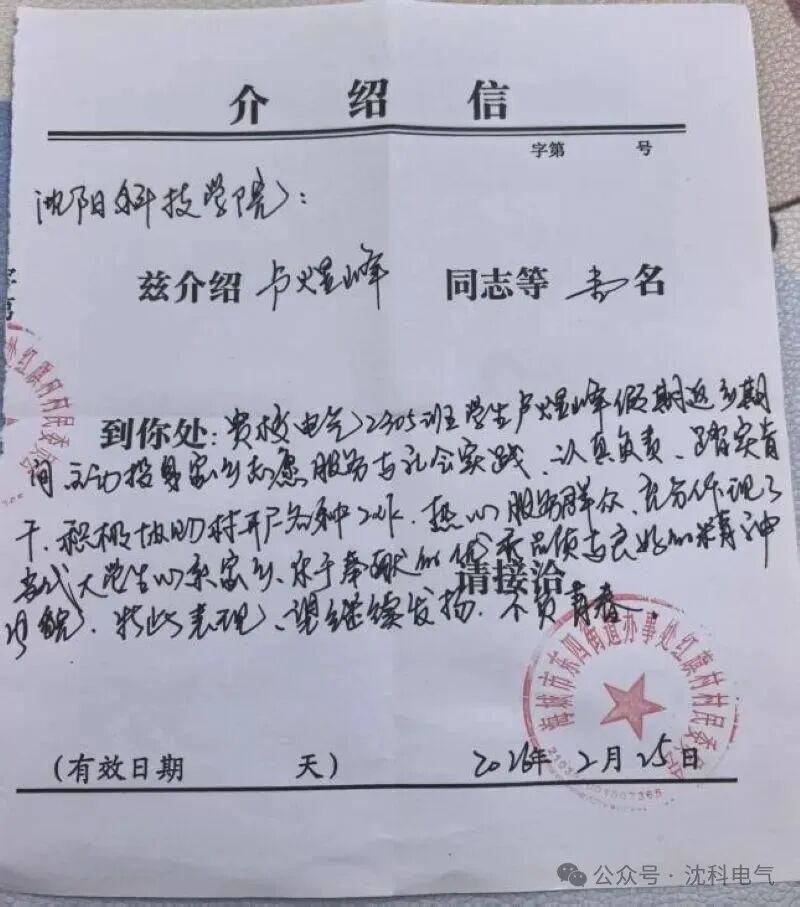 介绍信
字第 号
沈阳科技学院：
兹介绍 卢煜峰 同志等 壹名
到你处：贵校电气2305班学生卢煜峰假期返乡期
间主动投身家乡志愿服务与社会实践、认真负责、踏实肯
干、积极协助村开展各种工作、热心服务群众、充分体现了
当代大学生心系家乡、乐于奉献的优秀品质与良好的精神
风貌、特此表现、望继续发扬、不负青春.
请接洽
（有效日期 天） 2026年2月25日
海城市东四街道办事处红旗村村民委员会
红旗村村民委
字第
公众号·沈科电气